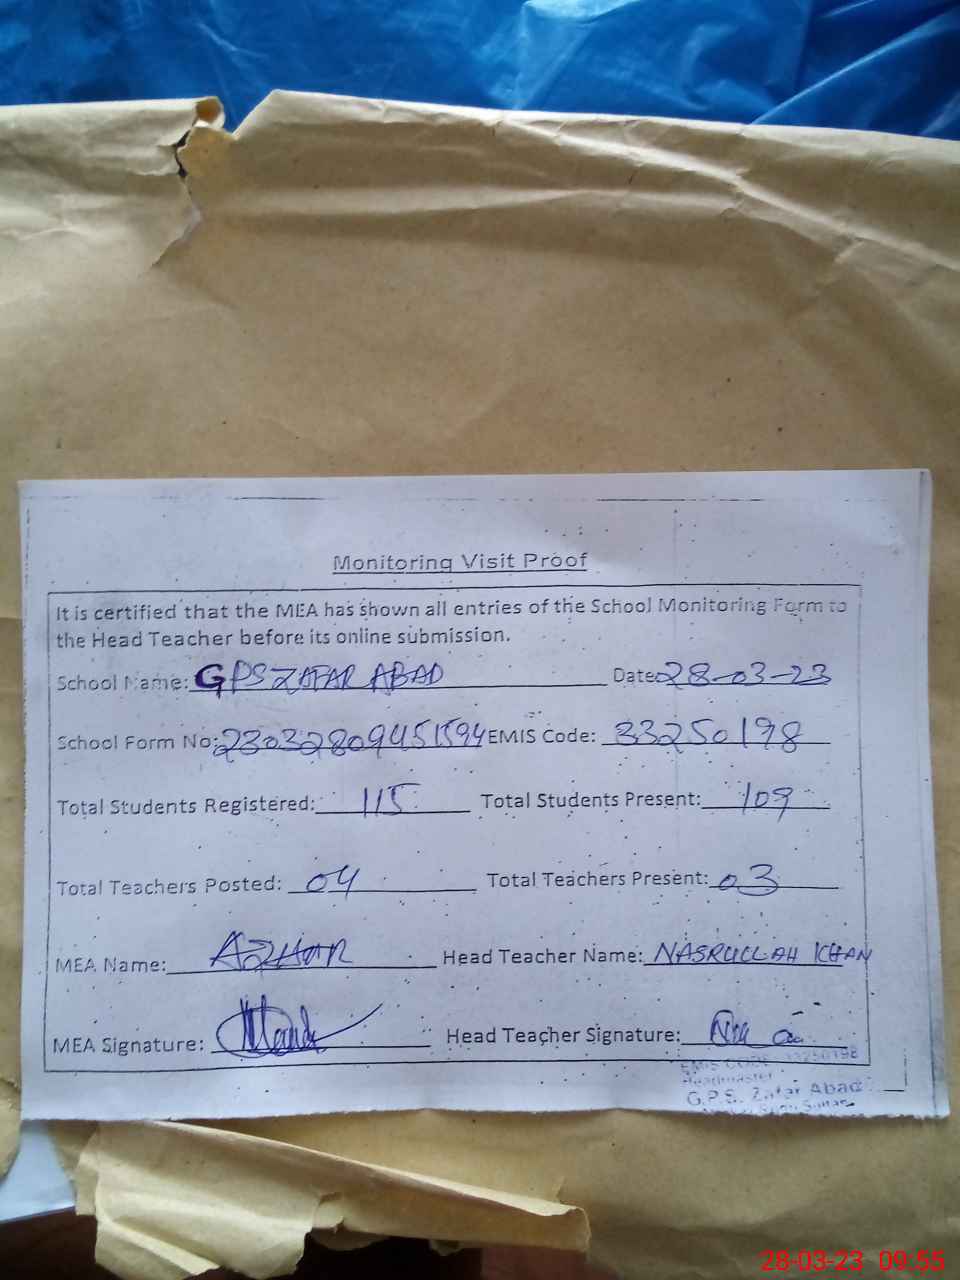 Monitoring Visit Proof
It is certified that the MEA has shown all entries of the School Monitoring Form to
the Head Teacher before its online submission.
School Name: GPS ZAFAR ABAD Date: 28-03-23
School Form No: 230328094451594 EMIS Code: 33250198
Total Students Registered: 115 Total Students Present: 109
Total Teachers Posted: 04 Total Teachers Present: 03
MEA Name: AZHAR Head Teacher Name: NASRULLAH KHAN
MEA Signature: Head Teacher Signature:
EMIS CODE: 33250198
Headmaster
G.P.S. Zafar Abad
28-03-23 09:55